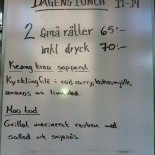 DAGENS LUNCH 11-14
2 Små rätter 65:-
inkl dryck 70:-
Keang krau sapparot
Kycklingfilé i röd curry, kokosmjölk,
ananas och limeblad.
Moo tod
Grillat marinerat revben med
sallad och sojasås